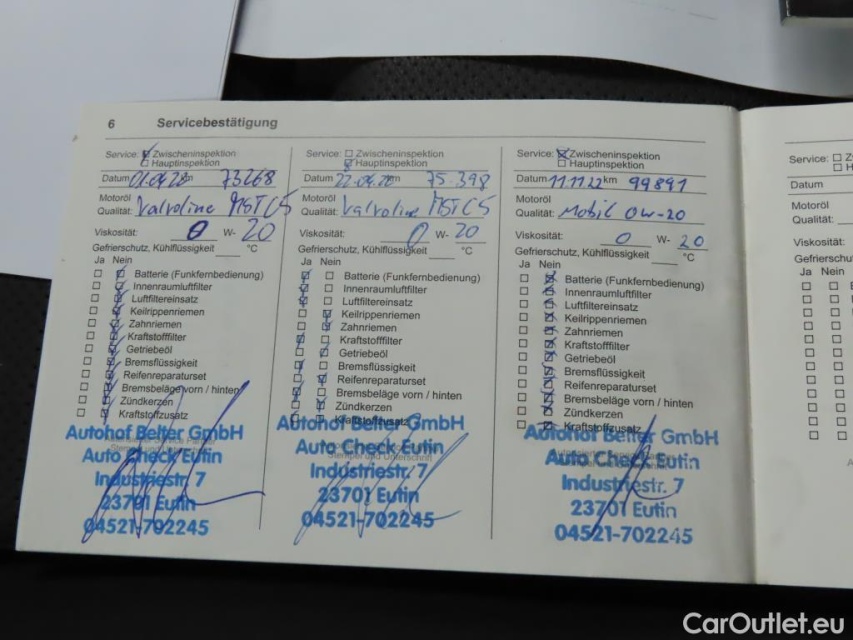 6 Servicebestätigung
Service: Zwischeninspektion
Hauptinspektion
Datum 01.04.20 km 73268
Motoröl
Qualität: Valvoline MST C5
Viskosität: 0 W- 20
Gefrierschutz, Kühlflüssigkeit °C
Ja Nein
Batterie (Funkfernbedienung)
Innenraumluftfilter
Luftfiltereinsatz
Keilrippenriemen
Zahnriemen
Kraftstofffilter
Getriebeöl
Bremsflüssigkeit
Reifenreparaturset
Bremsbeläge vorn / hinten
Zündkerzen
Kraftstoffzusatz
Autohof Belter GmbH
Auto Check Eutin
Industriestr. 7
23701 Eutin
04521-702245
Service: Zwischeninspektion
Hauptinspektion
Datum 22.04.20 75.398
Motoröl
Qualität: Valvoline MST C5
Viskosität: 0 W- 20
Gefrierschutz, Kühlflüssigkeit °C
Ja Nein
Batterie (Funkfernbedienung)
Innenraumluftfilter
Luftfiltereinsatz
Keilrippenriemen
Zahnriemen
Kraftstofffilter
Getriebeöl
Bremsflüssigkeit
Reifenreparaturset
Bremsbeläge vorn / hinten
Zündkerzen
Kraftstoffzusatz
Autohof Belter GmbH
Auto Check Eutin
Stempel und Unterschrift
Industriestr. 7
23701 Eutin
04521-702245
Service: Zwischeninspektion
Hauptinspektion
Datum 11.11.22 km 99891
Motoröl
Qualität: Mobil 0W-20
Viskosität: 0 W- 20
Gefrierschutz, Kühlflüssigkeit °C
Ja Nein
Batterie (Funkfernbedienung)
Innenraumluftfilter
Luftfiltereinsatz
Keilrippenriemen
Zahnriemen
Kraftstofffilter
Getriebeöl
Bremsflüssigkeit
Reifenreparaturset
Bremsbeläge vorn / hinten
Zündkerzen
Kraftstoffzusatz
Autohof Belter GmbH
Auto Check Eutin
Industriestr. 7
23701 Eutin
04521-702245
Service:
Datum
Motoröl
Qualität:
Viskosität:
Ja Nein
CarOutlet.eu